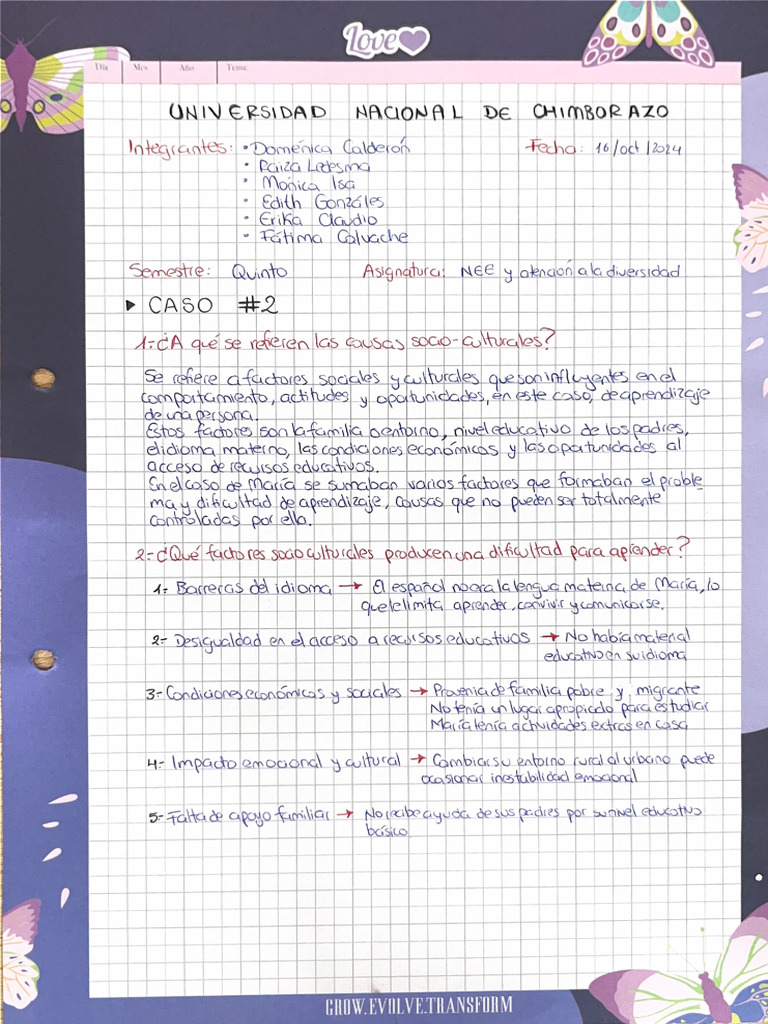 Love
Día Mes Año Tema:
UNIVERSIDAD NACIONAL DE CHIMBORAZO
Integrantes: • Doménica Calderón Fecha: 16/oct/2024
• Raiza Ledesma
• Mónica Isa
• Edith Gonzáles
• Erika Claudio
• Fátima Calvache
Semestre: Quinto Asignatura: NEE y atención a la diversidad
▸ CASO #2
1-¿A qué se refieren las causas socio-culturales?
Se refiere a factores sociales y culturales que son influyentes en el
comportamiento, actitudes y oportunidades, en este caso, de aprendizaje
de una persona.
Estos factores son la familia o entorno, nivel educativo de los padres,
el idioma materno, las condiciones económicos y las oportunidades al
acceso de recursos educativos.
En el caso de María se sumaban varios factores que formaban el proble
ma y dificultad de aprendizaje, causas que no pueden ser totalmente
controladas por ella.
2-¿Qué factores socioculturales producen una dificultad para aprender?
1- Barreras del idioma → El español no era la lengua materna de María, lo
que le limita aprender, convivir y comunicarse.
2- Desigualdad en el acceso a recursos educativos → No había material
educativo en su idioma
3- Condiciones económicas y sociales → Provenía de familia pobre y migrante
No tenía un lugar apropiado para estudiar
María tenía actividades extras en casa
4- Impacto emocional y cultural → Cambiar su entorno rural al urbano puede
ocasionar inestabilidad emocional
5- Falta de apoyo familiar → No recibe ayuda de sus padres por su nivel educativo
básico
GROW.EVOLVE.TRANSFORM